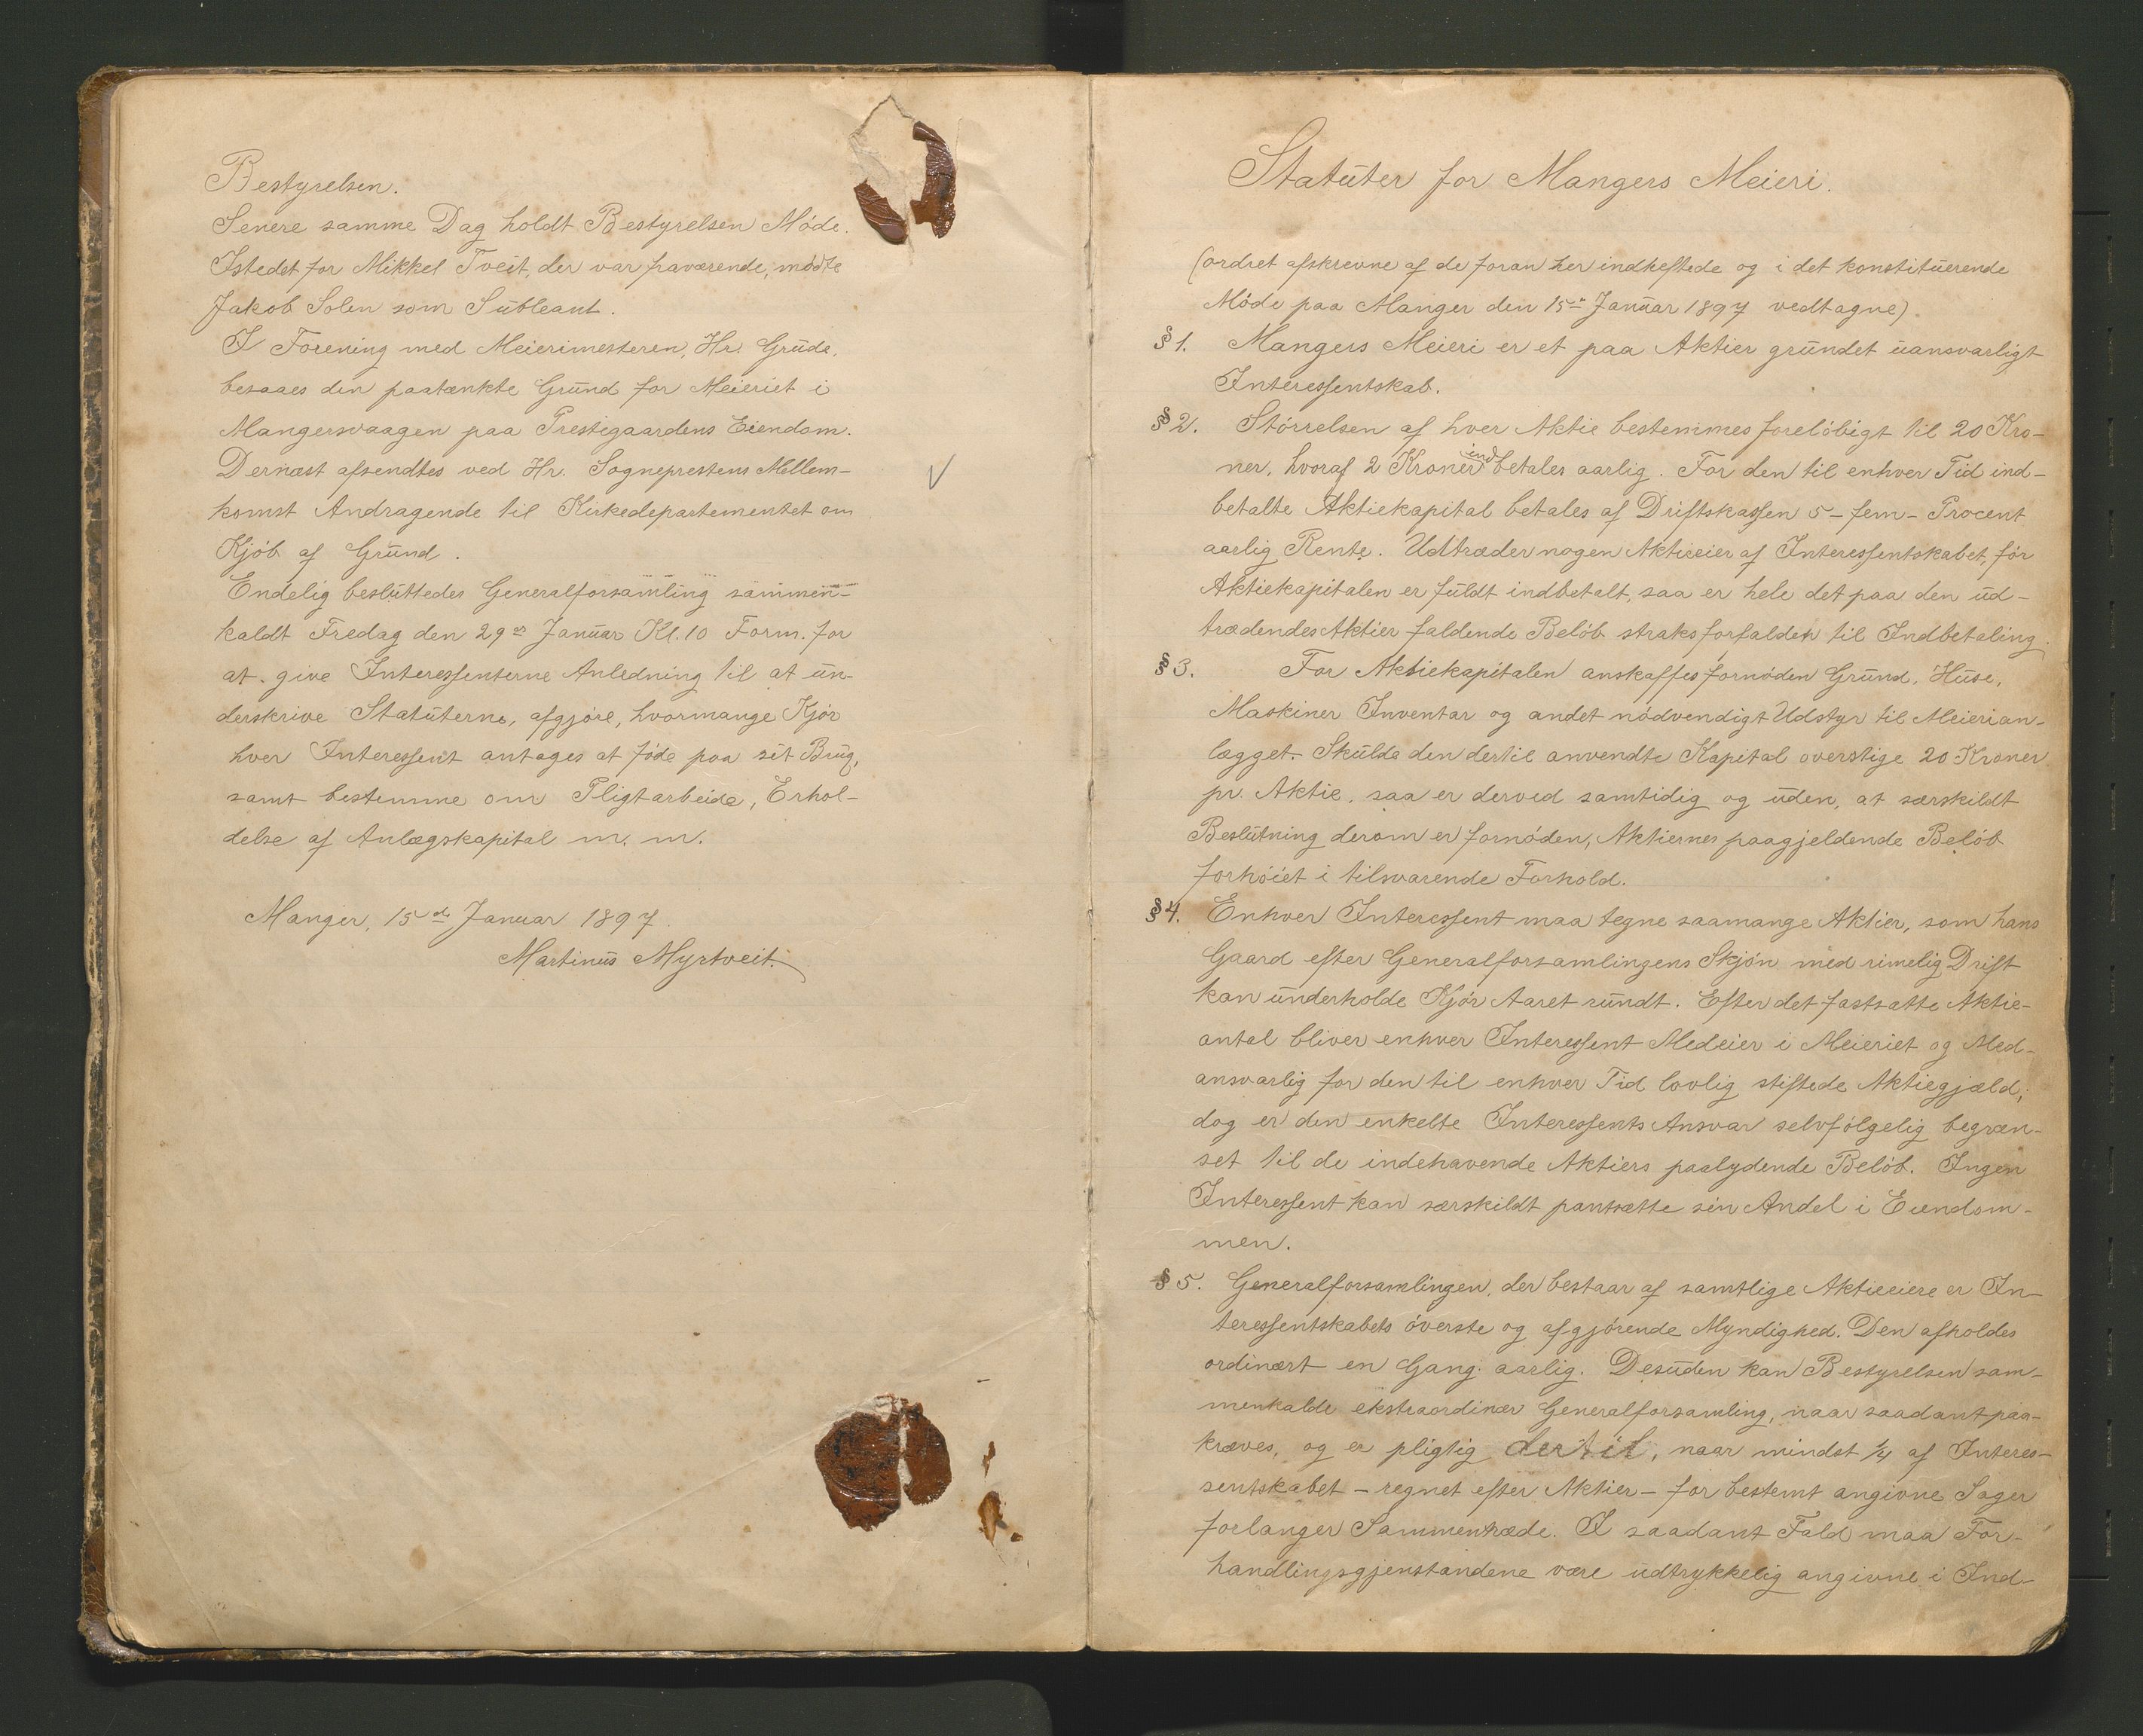 Bestyrelsen.
Senere samme Dag holdt Bestyrelsen Möde.
Istedet for Mikkel Tveit, der var fraværende, mödte
Jakob Solen som Subleant.
I Forening med Meierimesteren, Hr. Grude,
besaaes den paatænkte Grund for Meieriet i
Mangersvaagen paa Prestegaardens Eiendom.
Dernæst afsendtes ved Hr. Sogneprestens Mellem-
komst Andragende til Kirkedepartementet om
Kjöb af Grund.
Endelig besluttedes Generalforsamling sammen-
kaldt Fredag den 29de Januar Kl. 10 Form. for
at give Interessenterne Anledning til at un-
derskrive Statuterne, afgjöre, hvormange Kjör
hver Interessent antages at föde paa sit Brug,
samt bestemme om Pligtarbeide, Erhol-
delse af Anlægskapital m. m.
Manger, 15de Januar 1897.
Martinus Myrtveit.
Statuter for Mangers Meieri.
(ordret afskrevne af de foran her indheftede og i det konstituerende
Möde paa Manger den 15de Januar 1897 vedtagne).
§ 1. Mangers Meieri er et paa Aktier grundet uansvarligt
Interessentskab.
§ 2. Störrelsen af hver Aktie bestemmes forelöbigt til 20 Kro-
ner, hvoraf 2 Kroner indbetales aarlig. For den til enhver Tid ind-
betalte Aktiekapital betales af Driftskassen 5 - fem - Procent
aarlig Rente. Udtræder nogen Aktieeier af Interessentskabet, för
Aktiekapitalen er fuldt indbetalt, saa er hele det paa den ud-
trædendes Aktier faldende Belöb straks forfalden til Indbetaling.
§ 3. For Aktiekapitalen anskaffes fornöden Grund, Huse,
Maskiner Inventar og andet nödvendigt Udstyr til Meierian-
lægget. Skulde den dertil anvendte Kapital overstige 20 Kroner
pr. Aktie, saa er derved samtidig og uden, at særskildt
Beslutning derom er fornöden, Aktiernes paagjeldende Belöb
forhöiet i tilsvarende Forhold.
§ 4. Enhver Interessent maa tegne saamange Aktier, som hans
Gaard efter Generalforsamlingens Skjön med rimelig Drift
kan underholde Kjör Aaret rundt. Efter det fastsatte Aktie-
antal bliver enhver Interessent Medeier i Meieriet og Med-
ansvarlig for den til enhver Tid lovlig stiftede Aktiegjæld;
dog er den enkelte Interessents Ansvar selvfölgelig begræn-
set til de indehavende Aktiers paalydende Belöb. Ingen
Interessent kan særskildt pantsætte sin Andel i Eiendom-
men.
§ 5. Generalforsamlingen, der bestaar af samtlige Aktieeiere er In-
teressentskabets överste og afgjörende Myndighed. Den afholdes
ordinært en Gang aarlig. Desuden kan Bestyrelsen sam-
menkalde ekstraordinær Generalforsamling, naar saadant paa-
kræves, og er pligtig dertil, naar mindst 1/4 af Interes-
sentskabet - regnet efter Aktier - for bestemt angivne Sager
forlanger Sammentræde. I saadant Fald maa For-
handlingsgjenstandene være udtrykkelig angivne i Ind-